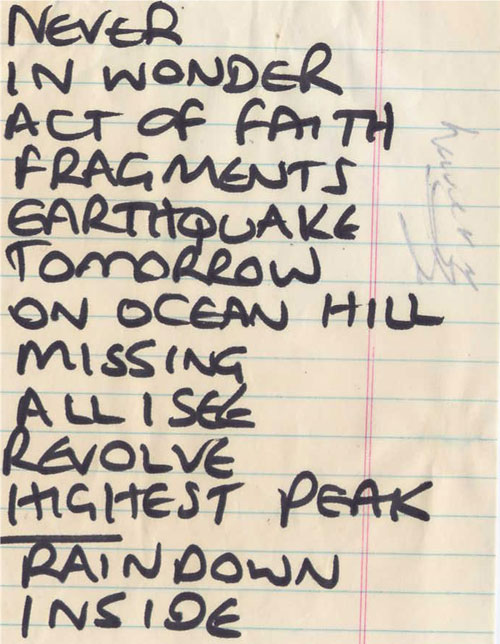 NEVER
IN WONDER
ACT OF FAITH
FRAGMENTS
EARTHQUAKE
TOMORROW
ON OCEAN HILL
MISSING
ALL I SEE
REVOLVE
HIGHEST PEAK
RAINDOWN
INSIDE